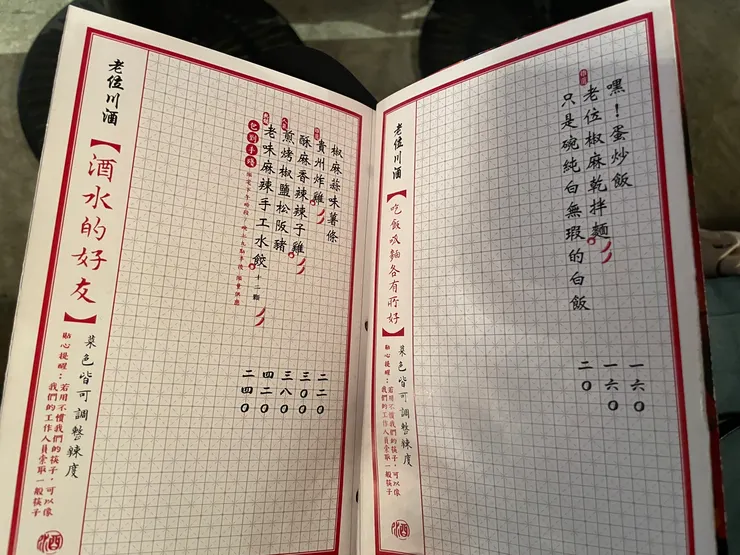 嘿！蛋炒飯 一六〇
老位椒麻乾拌麵 一六〇
只是碗純白無瑕的白飯 二〇
老位川酒
【吃飯呷麵各有所好】
菜色皆可調整辣度
貼心提醒：若用不慣我們的筷子，可以像
我們的工作人員拿取一般筷子
椒麻蒜味薯條 二二〇
貴州炸雞 三〇〇
酥麻香辣辣子雞 三八〇
煎烤椒鹽松阪豬 四二〇
老味麻辣手工水餃 十二顆 二四〇
包到手殘
老位川酒
【酒水的好友】
菜色皆可調整辣度
貼心提醒：若用不慣我們的筷子，可以像
我們的工作人員拿取一般筷子